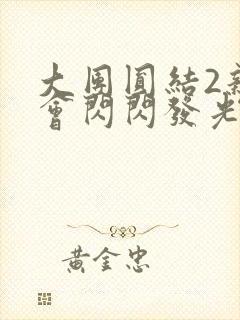 大團圓結2新
會閃閃發光
黃金忠